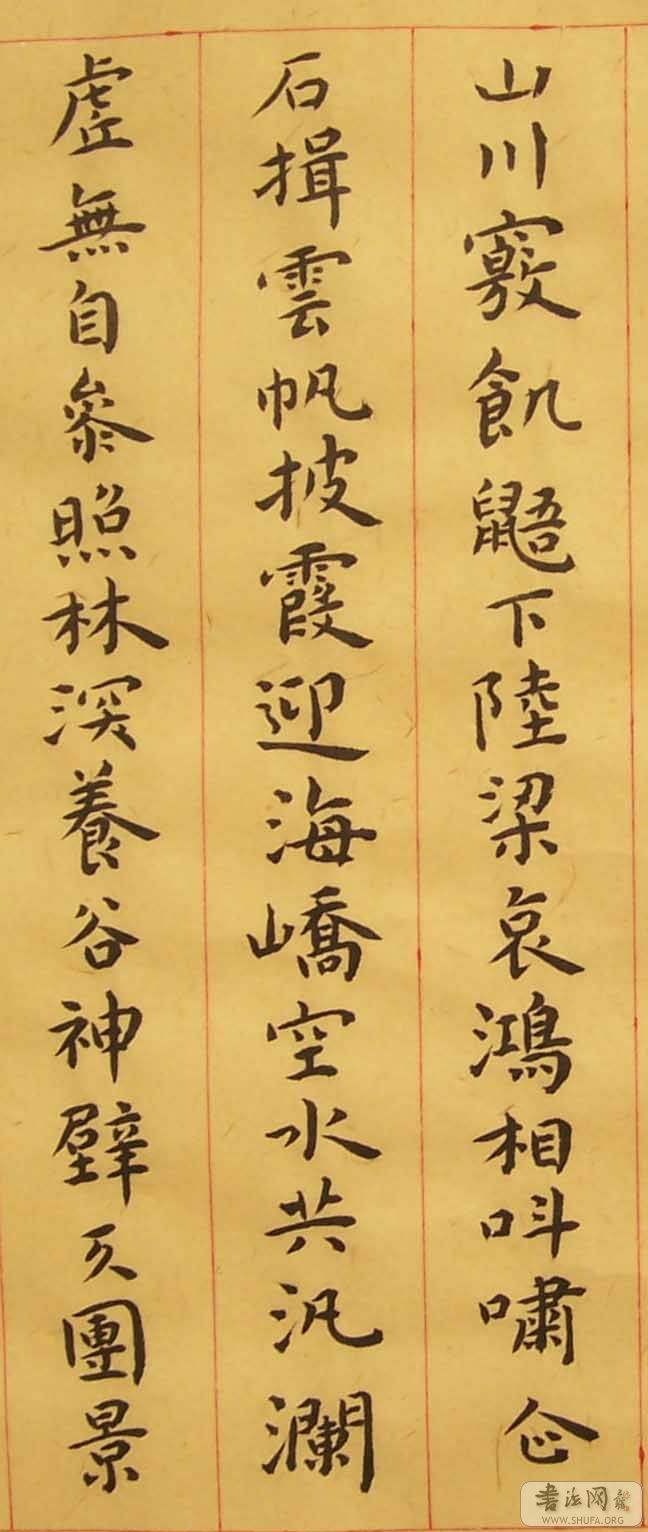 山川竅飢鼯下陸梁哀鴻相叫嘯企
石揖雲帆披霞迎海嶠空水共汎瀾
虛無自參照林深養谷神壁仄團景
書法网
WWW.SHUFA.ORG